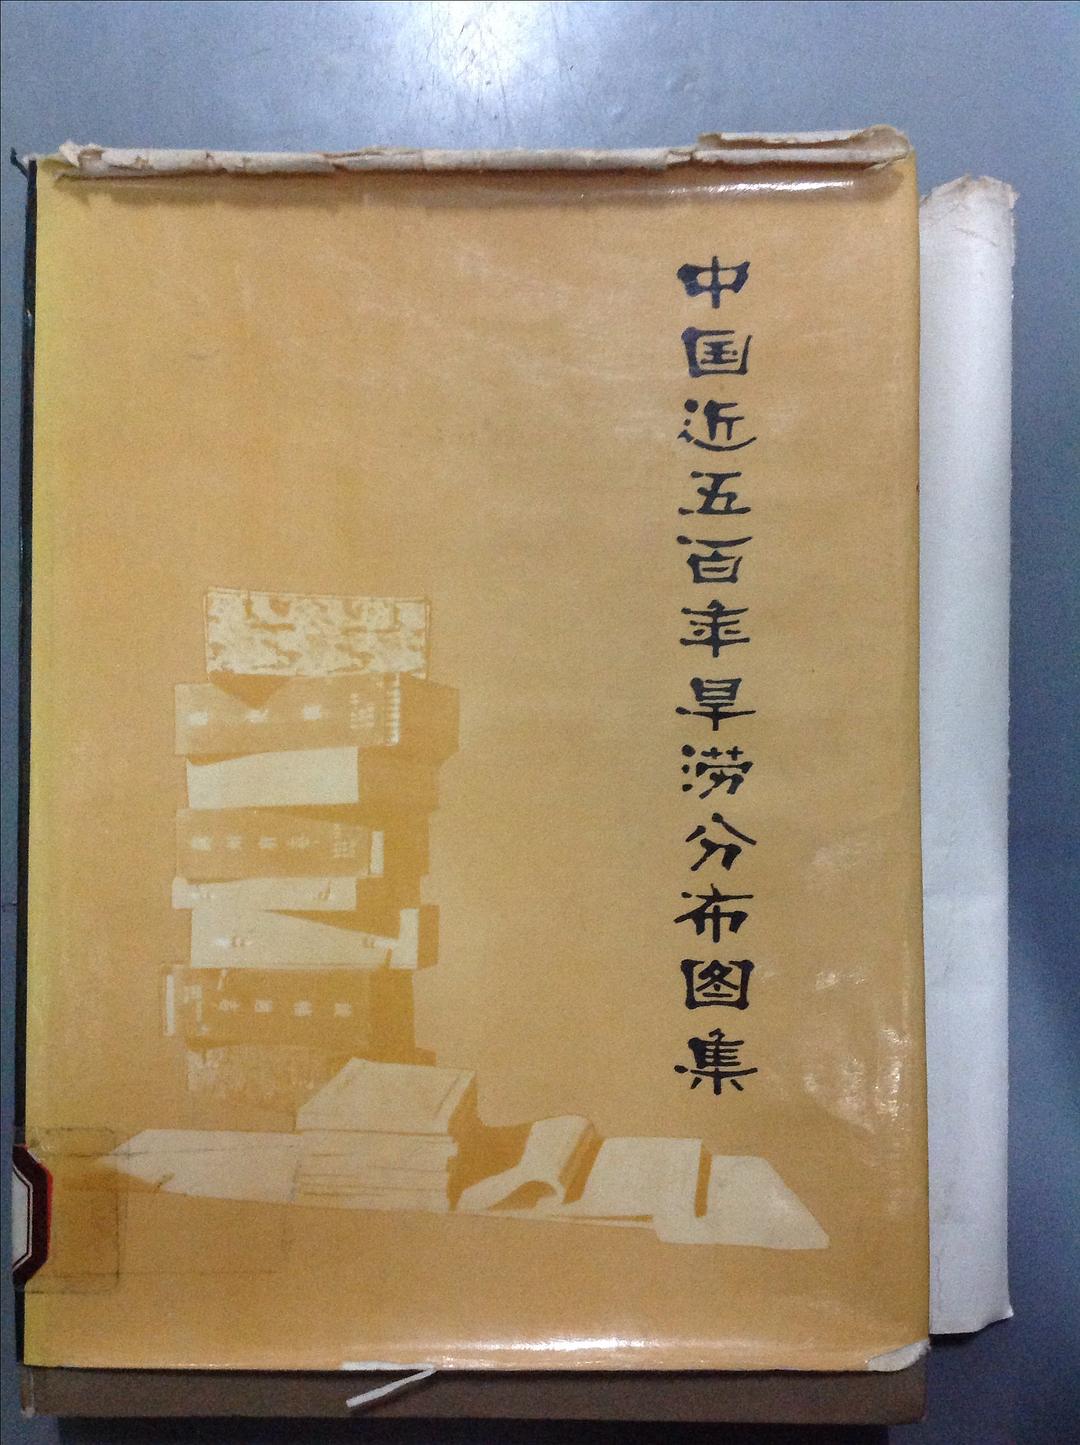 中国近五百年旱涝分布图集